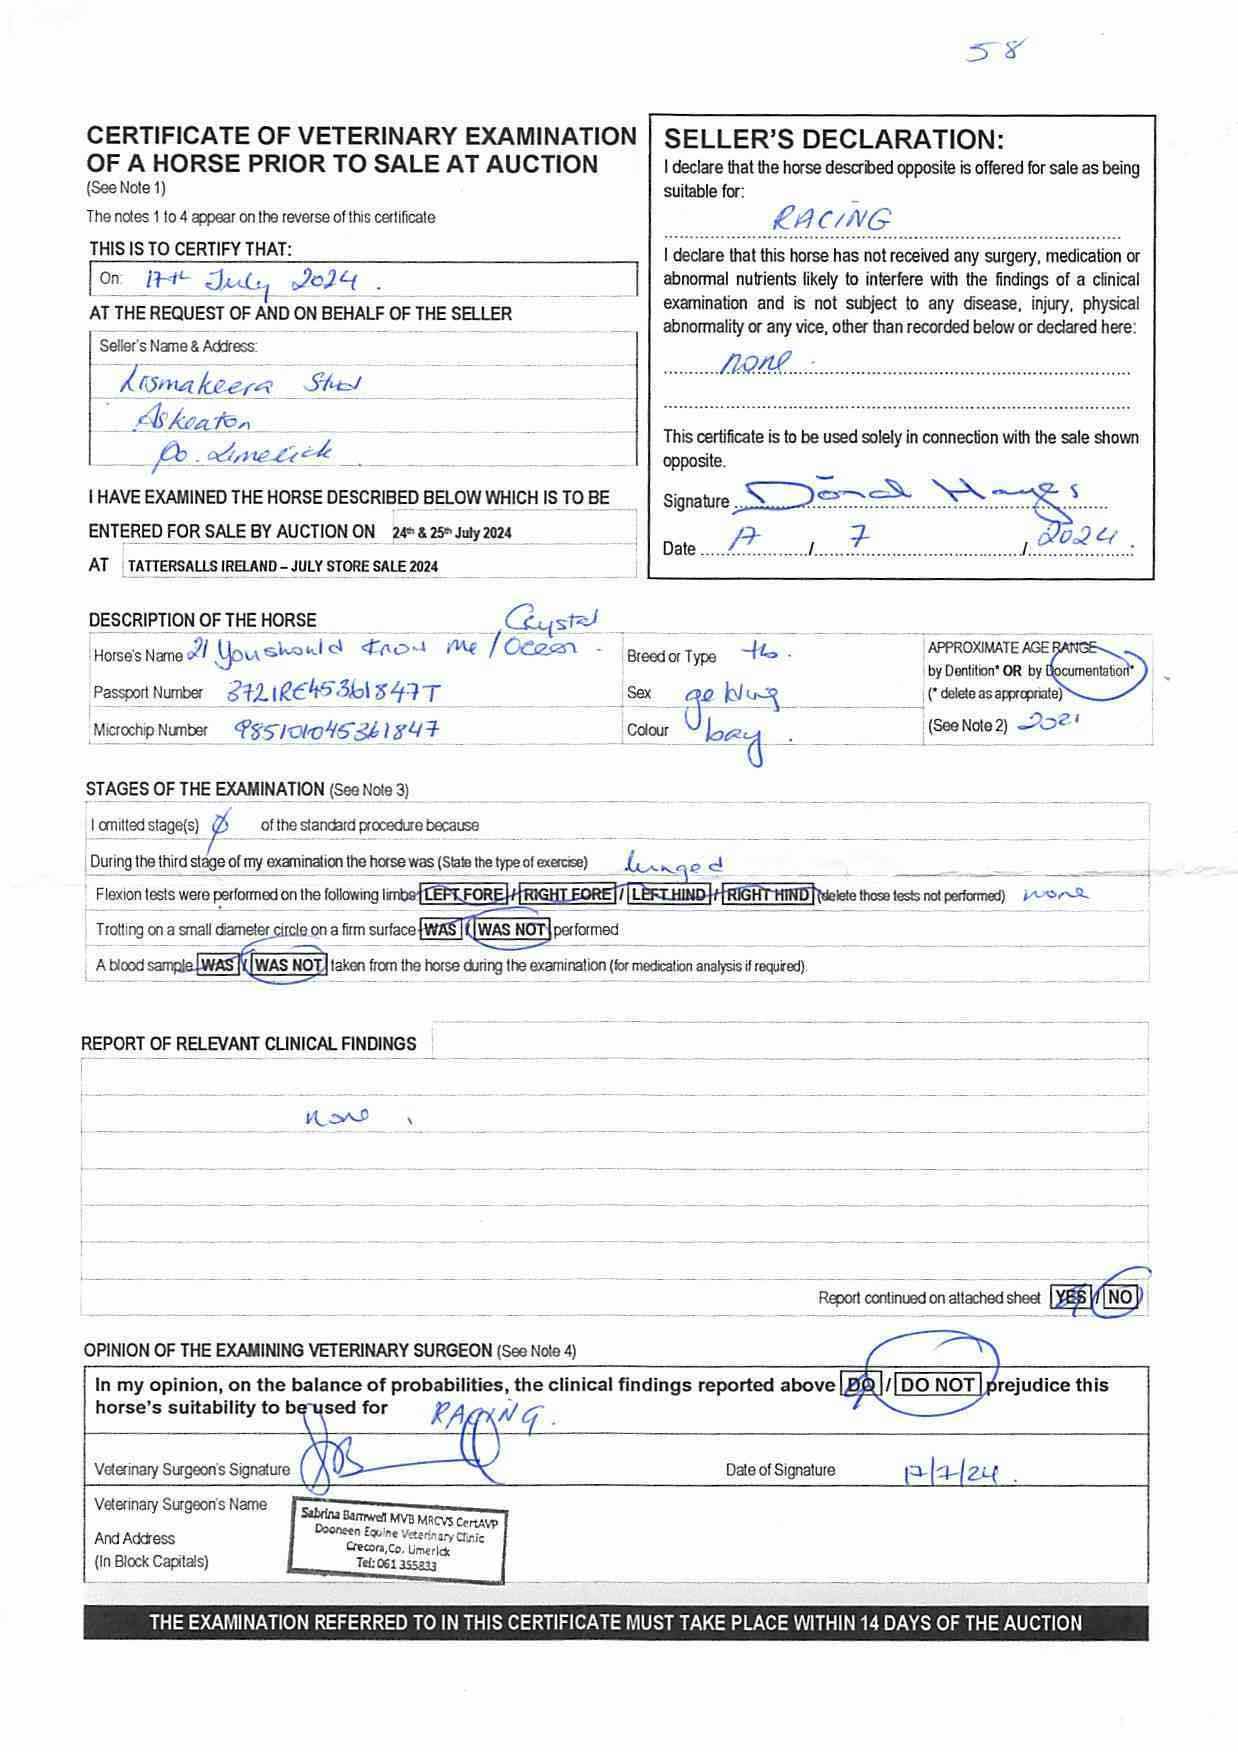 58
CERTIFICATE OF VETERINARY EXAMINATION
OF A HORSE PRIOR TO SALE AT AUCTION
(See Note 1)
The notes 1 to 4 appear on the reverse of this certificate
THIS IS TO CERTIFY THAT:
On: 17th July 2024.
AT THE REQUEST OF AND ON BEHALF OF THE SELLER
Seller's Name & Address:
Lismakeera Stud
Askeaton
Co. Limerick
I HAVE EXAMINED THE HORSE DESCRIBED BELOW WHICH IS TO BE
ENTERED FOR SALE BY AUCTION ON 24th & 25th July 2024
AT TATTERSALLS IRELAND – JULY STORE SALE 2024
SELLER'S DECLARATION:
I declare that the horse described opposite is offered for sale as being
suitable for:
RACING
I declare that this horse has not received any surgery, medication or
abnormal nutrients likely to interfere with the findings of a clinical
examination and is not subject to any disease, injury, physical
abnormality or any vice, other than recorded below or declared here:
none.
This certificate is to be used solely in connection with the sale shown
opposite.
Signature Dónal Hayes
Date 17 / 7 / 2024.
DESCRIPTION OF THE HORSE
Crystal
Horse's Name 21 You should know me / Ocean.
Breed or Type tb.
APPROXIMATE AGE RANGE
by Dentition* OR by Documentation*
Passport Number 372IRE45361847T
Sex gelding
(* delete as appropriate)
Microchip Number 985101045361847
Colour bay.
(See Note 2) 2021
STAGES OF THE EXAMINATION (See Note 3)
I omitted stage(s) Ø of the standard procedure because
During the third stage of my examination the horse was (State the type of exercise) lunged
Flexion tests were performed on the following limbs LEFT FORE / RIGHT FORE / LEFT HIND / RIGHT HIND (delete those tests not performed) none
Trotting on a small diameter circle on a firm surface WAS / WAS NOT performed
A blood sample WAS / WAS NOT taken from the horse during the examination (for medication analysis if required).
REPORT OF RELEVANT CLINICAL FINDINGS
none.
Report continued on attached sheet YES / NO
OPINION OF THE EXAMINING VETERINARY SURGEON (See Note 4)
In my opinion, on the balance of probabilities, the clinical findings reported above DO / DO NOT prejudice this
horse's suitability to be used for RACING.
Veterinary Surgeon's Signature
Date of Signature 17/7/24.
Veterinary Surgeon's Name
And Address
(In Block Capitals)
Sabrina Barnwell MVB MRCVS CertAVP
Dooneen Equine Veterinary Clinic
Crecora, Co. Limerick
Tel: 061 355833
THE EXAMINATION REFERRED TO IN THIS CERTIFICATE MUST TAKE PLACE WITHIN 14 DAYS OF THE AUCTION